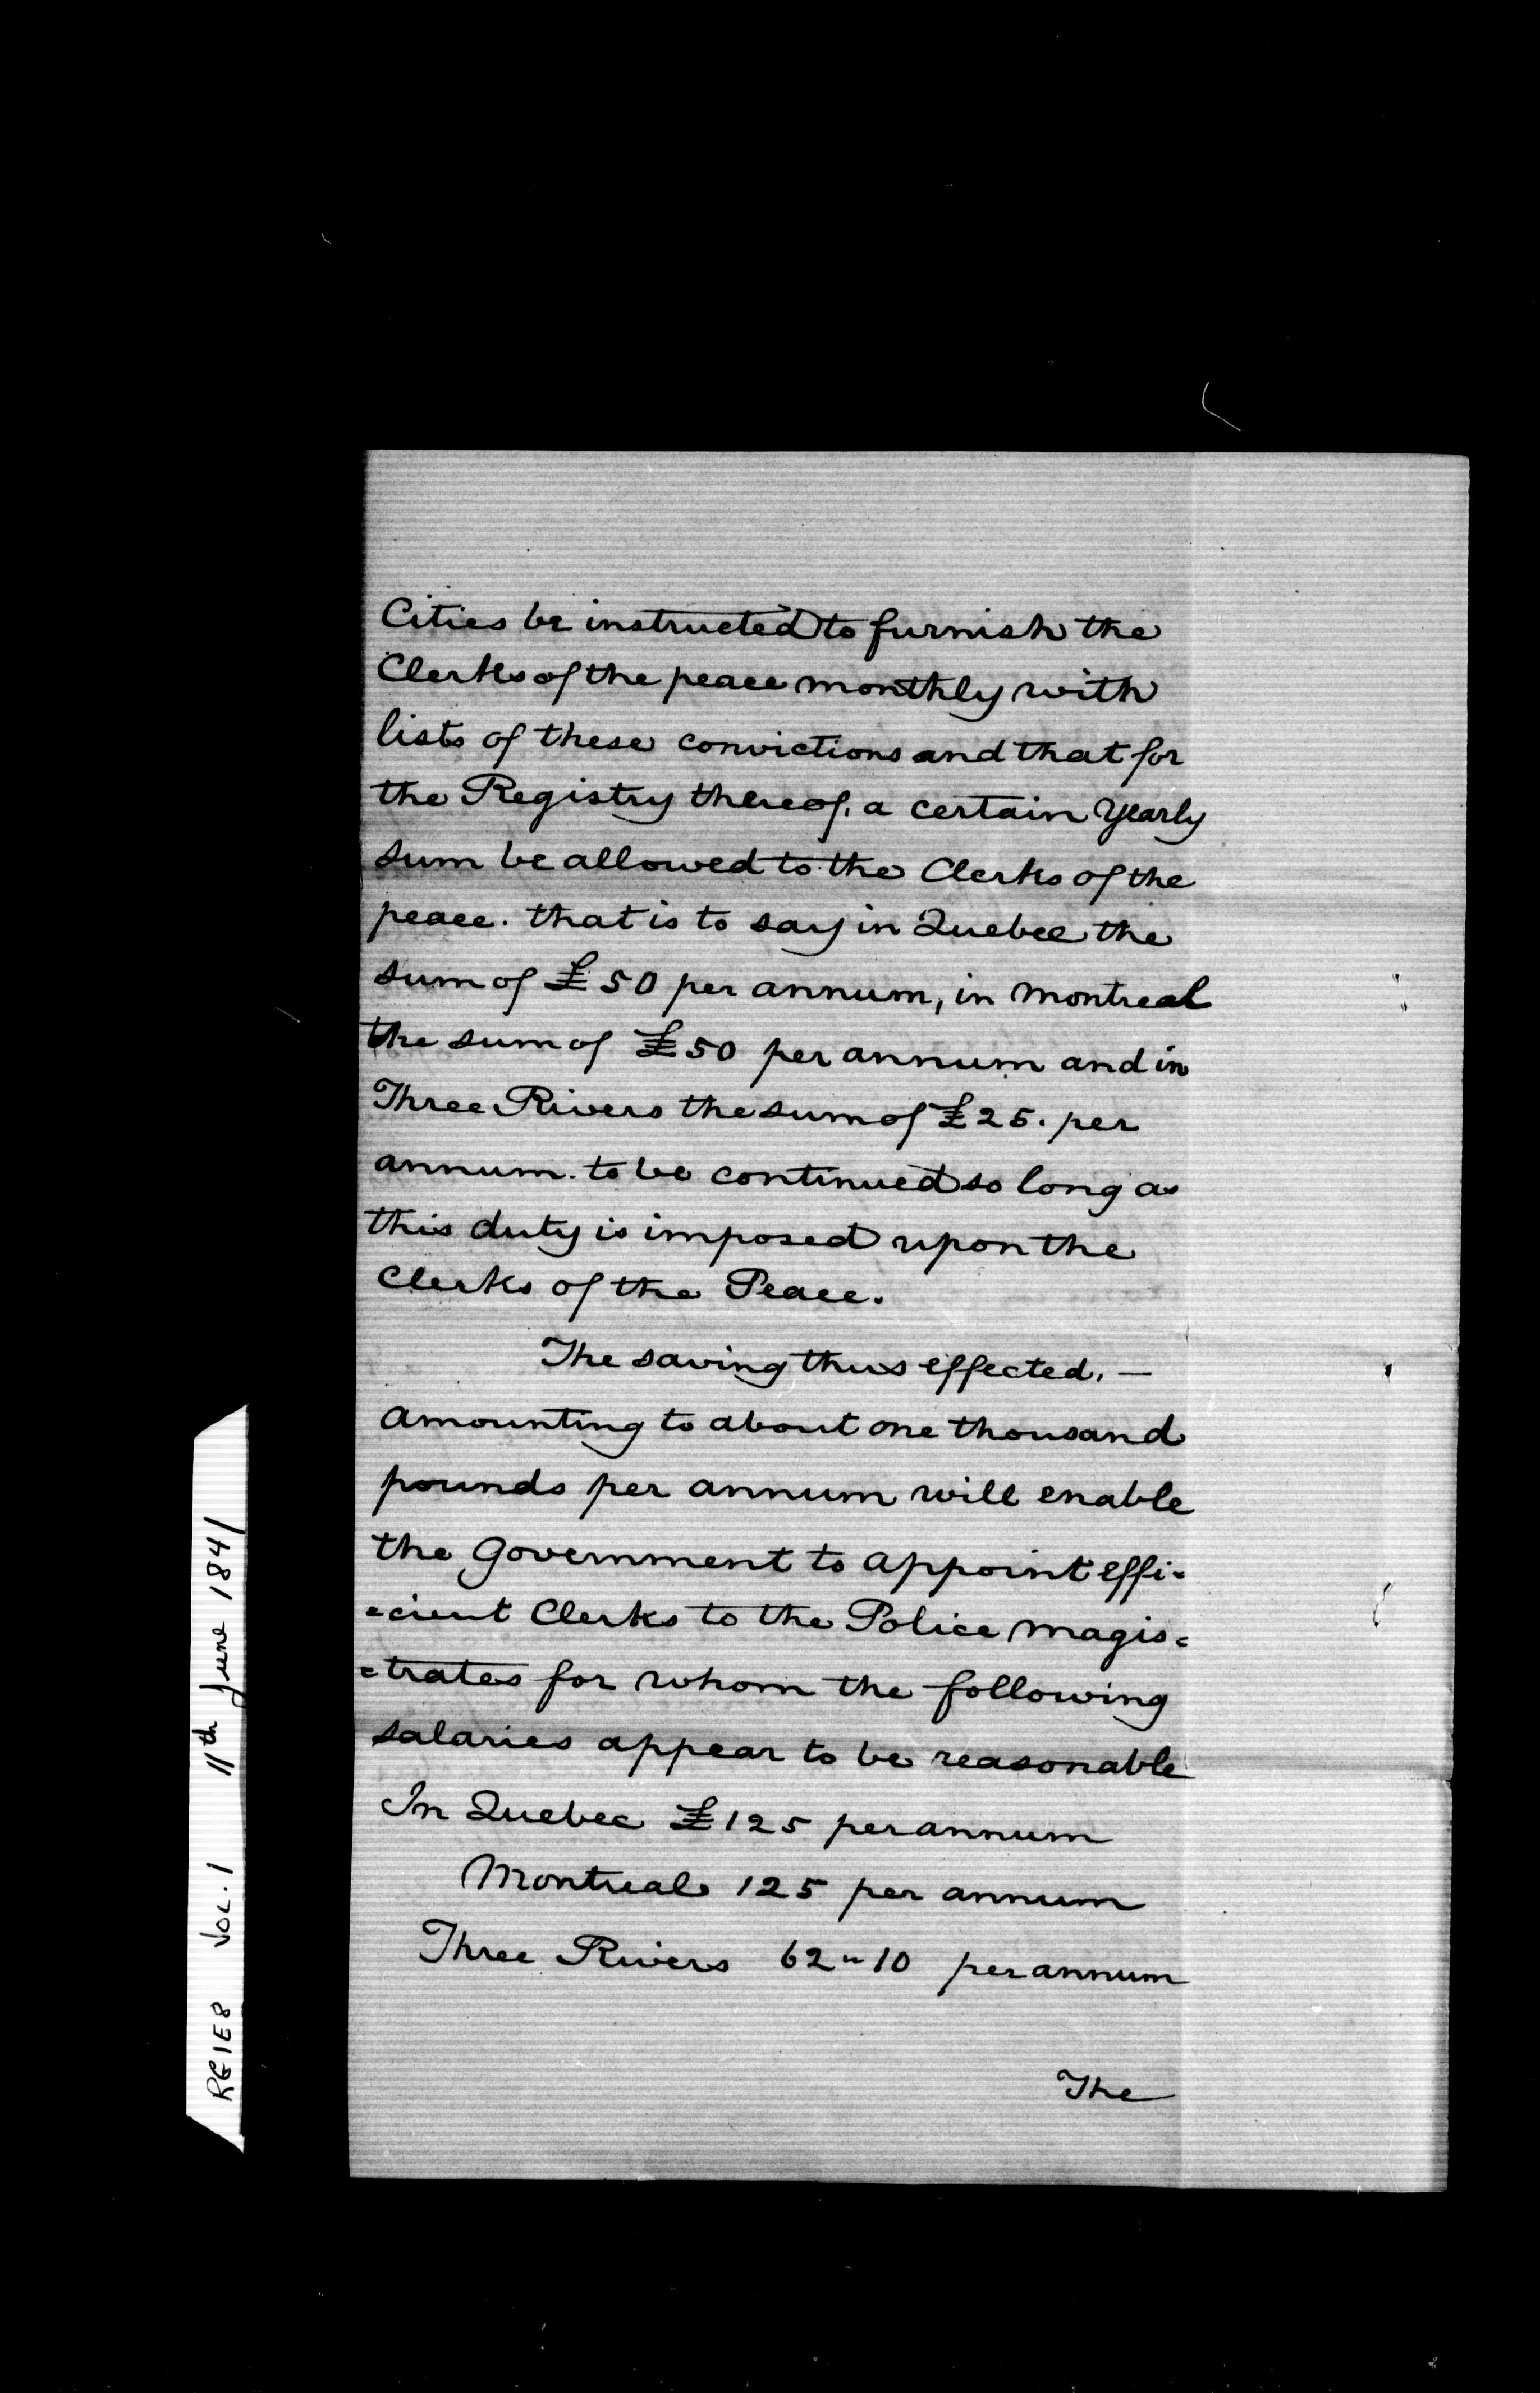 Cities be instructed to furnish the
Clerks of the peace monthly with
lists of these convictions and that for
the Registry thereof, a certain Yearly
sum be allowed to the Clerks of the
peace. that is to say in Quebec the
sum of £50 per annum, in Montreal
the sum of £50 per annum and in
Three Rivers the sum of £25. per
annum. to be continued so long as
this duty is imposed upon the
Clerks of the Peace.
The saving thus effected. —
amounting to about one thousand
pounds per annum will enable
the Government to appoint effi=
=cient Clerks to the Police magis=
=trates for whom the following
salaries appear to be reasonable
In Quebec £125 per annum
Montreal 125 per annum
Three Rivers 62 " 10 per annum
The
RG1E8 VOL. 1 11th June 1841